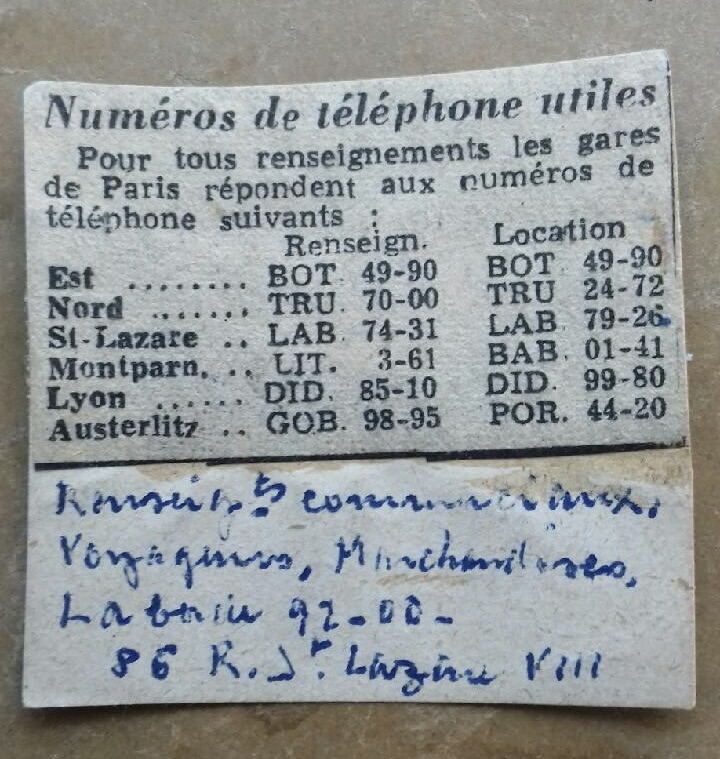 Numéros de téléphone utiles
Pour tous renseignements les gares
de Paris répondent aux numéros de
téléphone suivants :
Renseign. Location
Est ........ BOT 49-90 BOT 49-90
Nord ....... TRU 70-00 TRU 24-72
St-Lazare .. LAB 74-31 LAB 79-26
Montparn. .. LIT. 3-61 BAB. 01-41
Lyon ...... DID. 85-10 DID. 99-80
Austerlitz .. GOB. 98-95 POR. 44-20
Renseigts commerciaux,
Voyageurs, Marchandises,
Laborde 92-00-
86 R. St. Lazare VIII